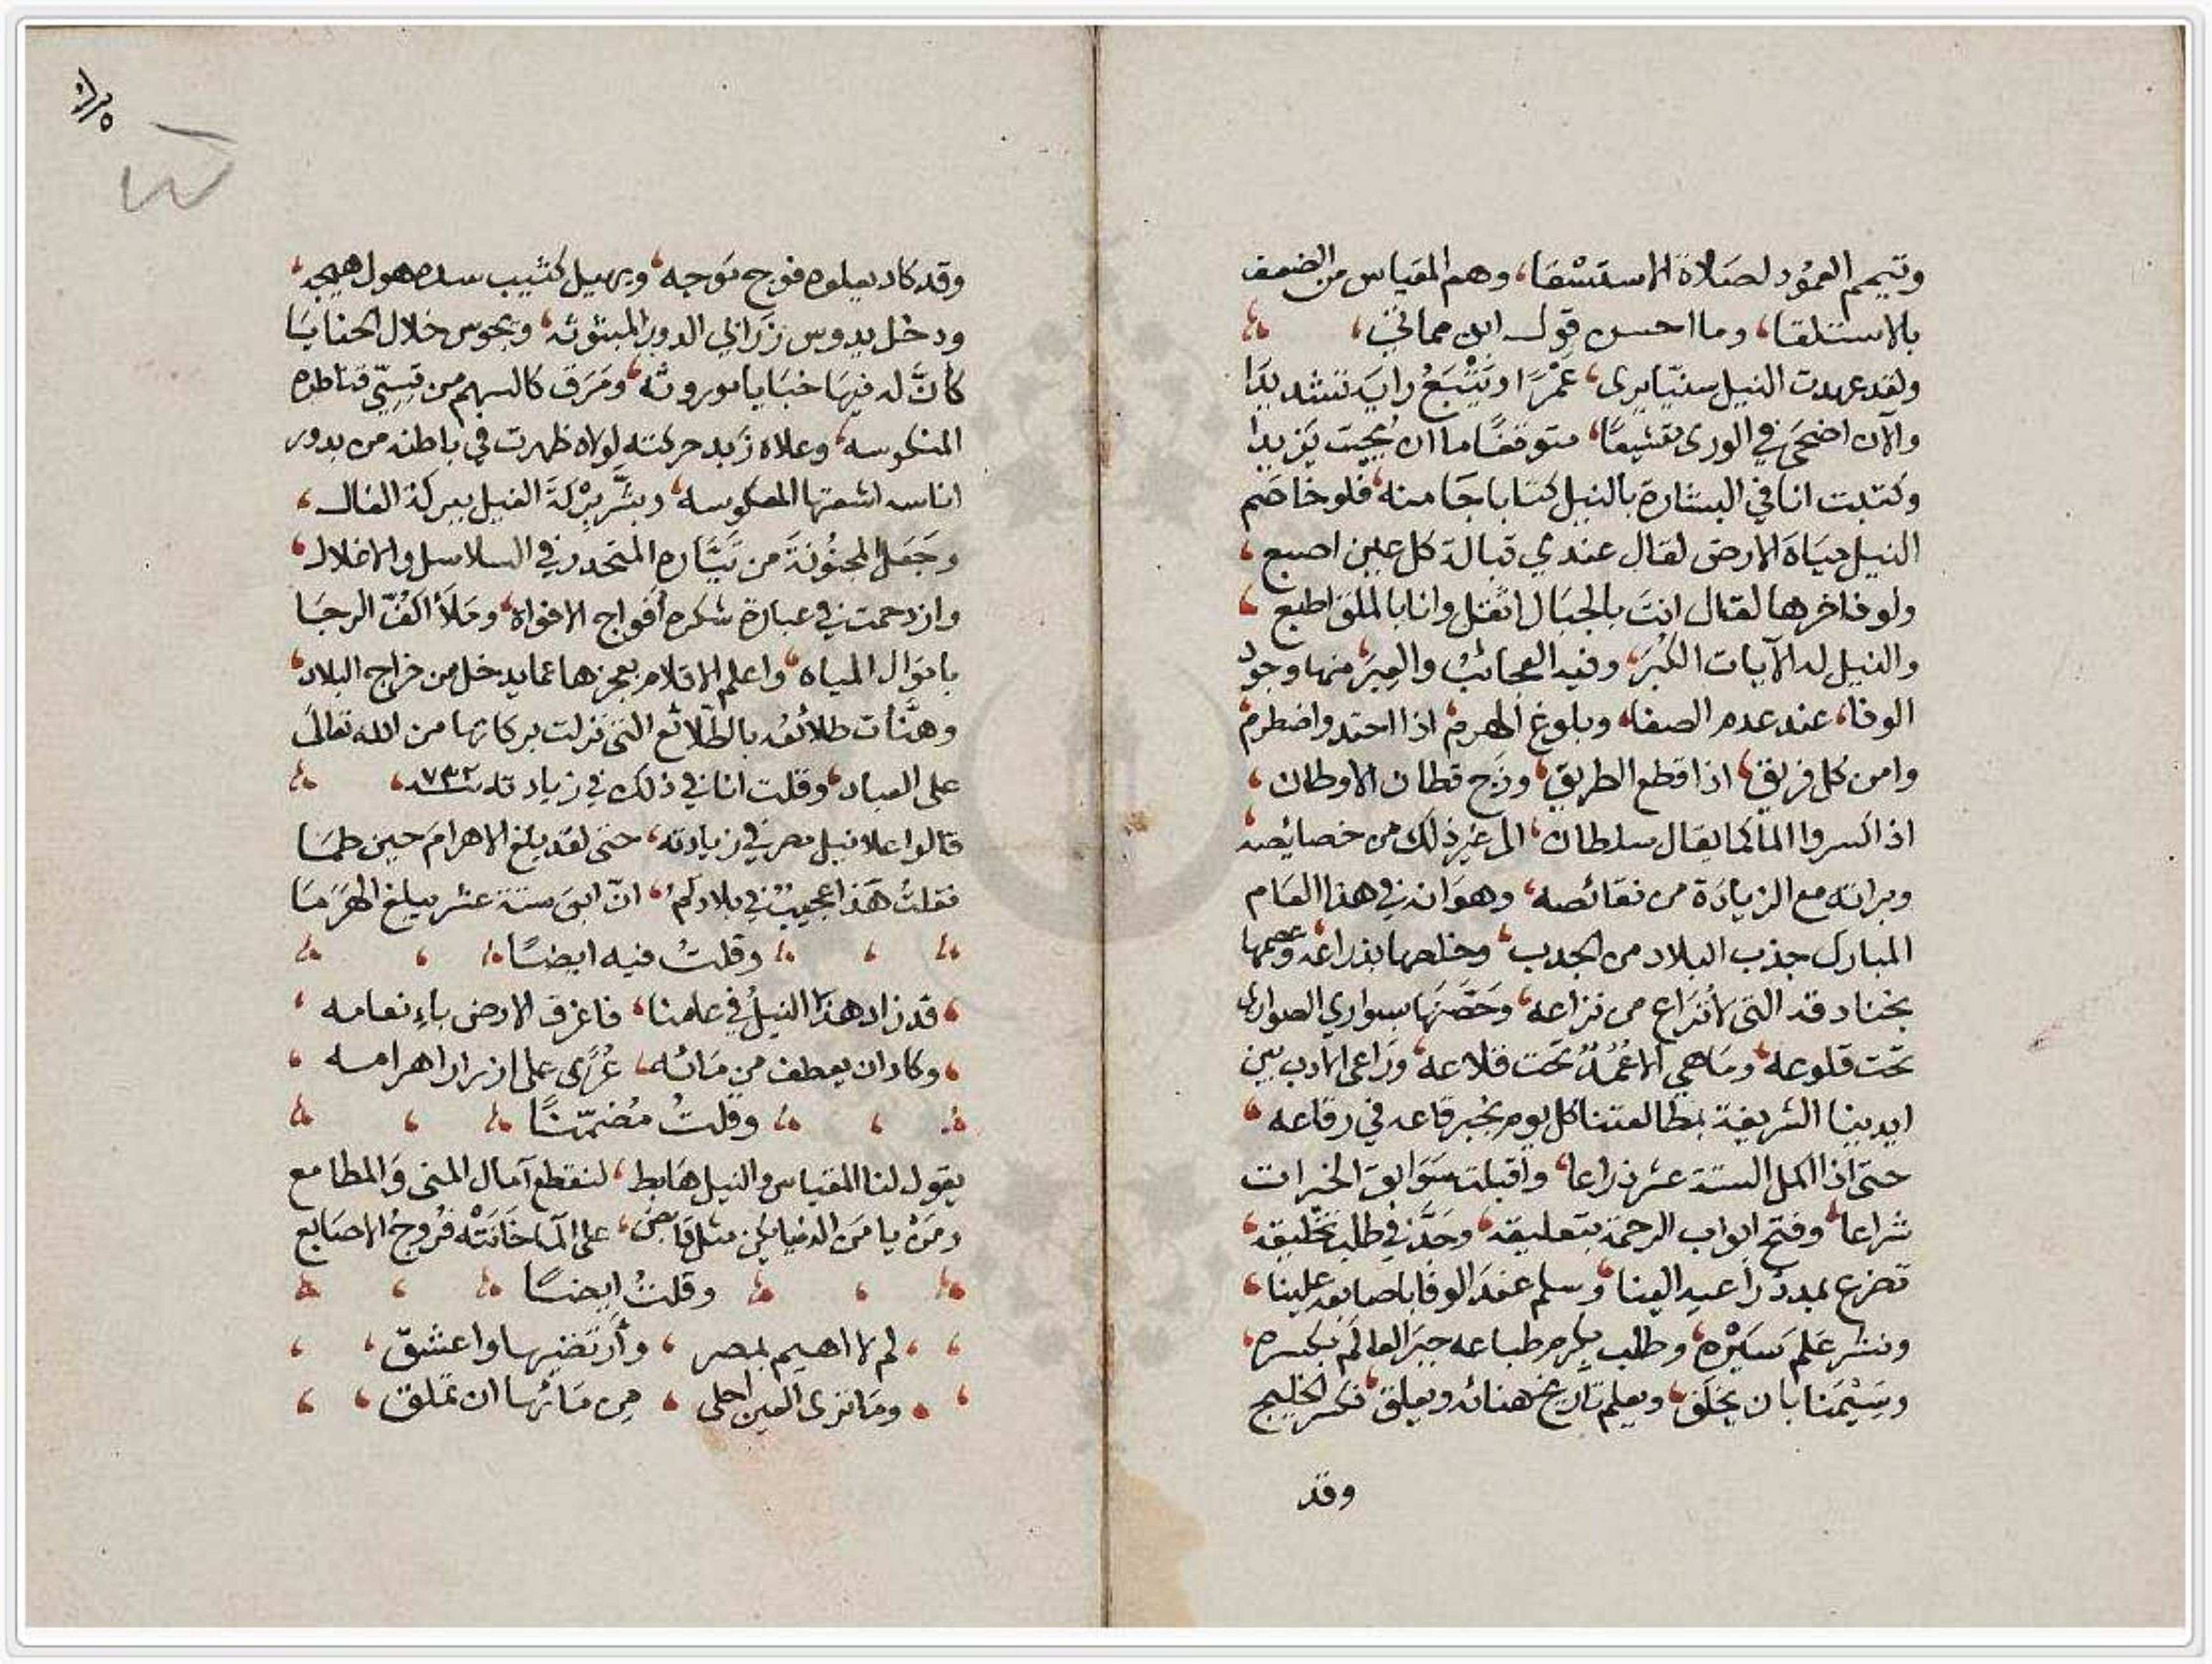 وتيمم العمود لصلاة الاستسقا، وهم المقياس من الضعف
بالاستلقا، وما احسن قول ابن مماتي،
ولقد عهدت النيل سنيا يرى، عمرا ويتبع راية تنشد يدا
والآن اضحى في الورى متشيعا، متوقفا ما ان يحب يزيدا
وكتبت انا في البشارة بالنيل كتابا جا منه، فلو خاصم
النيل مياه الارض لقال عندي قبالة كل عين اصبع،
ولو فاخرها لقال انت بالجبال اثقل وانا بالملق اطبع،
والنيل له الآيات الكبر، وفيه العجائب والعبر، منها وجود
الوفا، عند عدم الصفا، وبلوغ الهرم، اذا احتد واضطرم،
وامن كل فريق، اذا قطع الطريق، وفرح قطان الاوطان،
اذا كسر والما كما يقال سلطان، الى غير ذلك من خصايصه،
وبراته مع الزيادة من نقائصه، وهو انه في هذا العام
المبارك جذب البلاد من الجدب، وخلصها بذراعه، وعصمها
بخنادقه التي لا تراع من تراعه، وحصنها بسواري الصواري
تحت قلوعه، وما هي الا عمد تحت قلاعه، وراعى الادب بين
ايدينا الشريفة بمطالعتنا كل يوم بخبر قاعه في رقاعه،
حتى اذا اكمل الستة عشر ذراعا، واقبلت سوابق الخيرات
شراعا، وفتح ابواب الرحمة بتعليقه، وجد في طلب تخليقه،
تضرع بمدد ذراعيه الينا، وسلم عند الوفا باصابعه علينا،
ونشر علم ستره، وطلب بكرم طباعه جبر العالم بكسره،
وسيمنا بان يخلق، ويعلم تاريخ هنائه ويعلق، فكسر الخليج
وقد
وقد كاد يعلوه فوج موجه، ويهيل كثيب سده هول هيجه،
ودخل يدوس زرابي الدور المبثوثه، ويجوس خلال الحنايا
كأن له فيها خبايا موروثه، ومرق كالسهم من قسي قناطره
المنكوسه، وعلاه زبد حركته لولاه ظهرت في باطنه من بدور
اناسه اشعتها المعكوسه، وبشر بركة الفيل ببركة الفال،
وجعل المجنونة من تياره المنحدر في السلاسل والاغلال،
وازدحمت في عبارة شكره أفواج الافواه، وملأ اكف الرجا
باموال المياه، واعلم الاقلام بعجزها عما يدخل من خراج البلاد،
وهنأت طلائعه بالطلائع التي نزلت بركاتها من الله تعالى
على العباد، وقلت انا في ذلك في زيادته سنة ٧٣٢،
قالوا علا نيل مصر في زيادته، حتى لقد بلغ الاهرام حين طما
فقلت هذا عجيب في بلادكم، ان ابن ستة عشر يبلغ الهرما
وقلت فيه ايضا
قد زاد هذا النيل في عامنا، فاغرق الارض بانعامه،
وكاد ان يعطف من مائه، عرى على ازرار اهرامه،
وقلت مضمنا
يقول لنا المقياس والنيل هابط، لنقطع آمال المنى والمطامع
ومن يامن الدنيا يكن مثل قابض، على الما خانته فروج الاصابع
وقلت ايضا
لم لا اهيم بمصر، وأرتضيها واعشق،
وما ترى العين احلى، من مائها ان تملق،